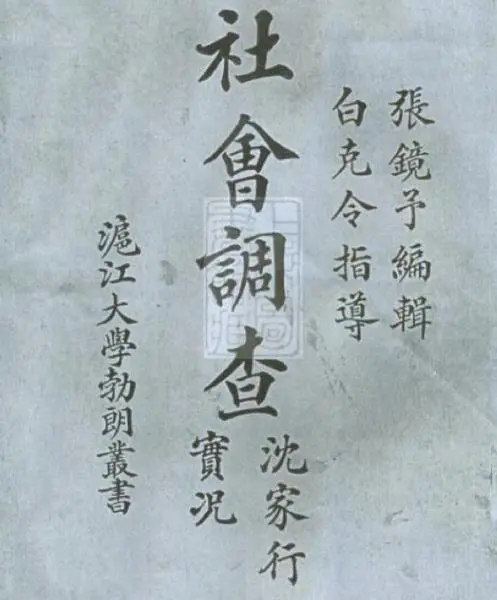 張鏡予編輯
白克令指導
社會調查
沈家行
實況
滬江大學勃朗叢書